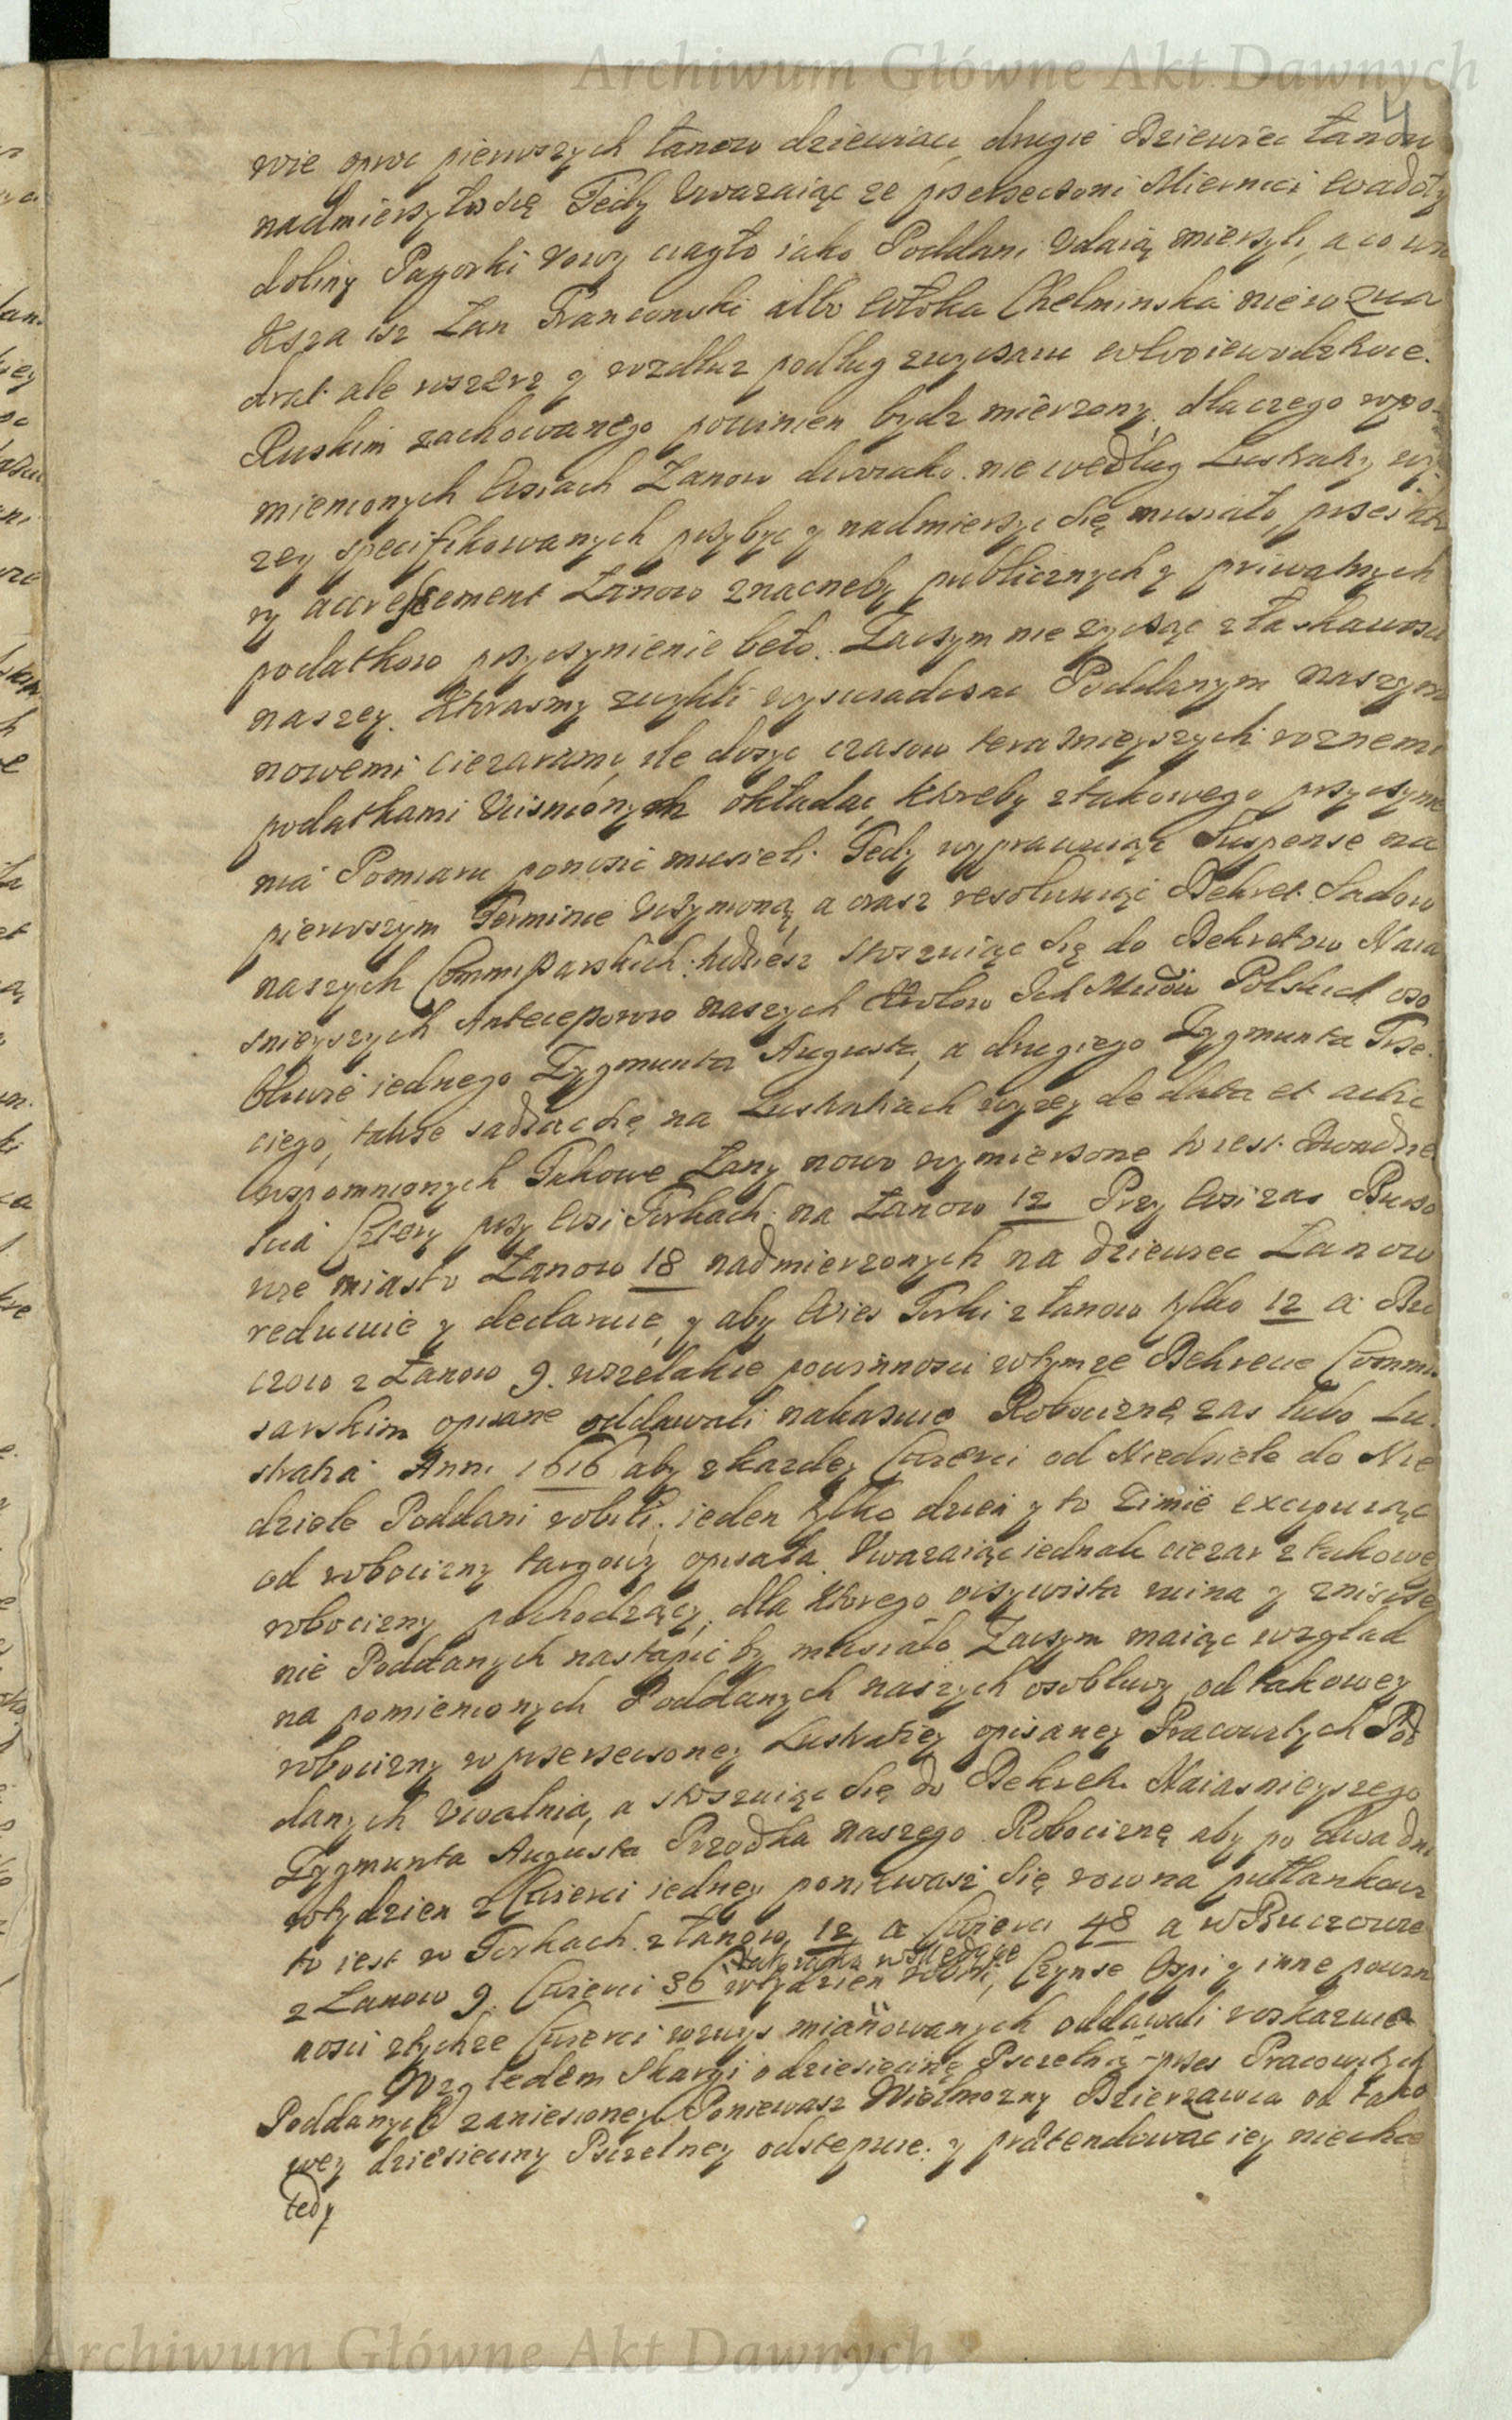 Archiwum Główne Akt Dawnych
4
wie oproc pierwszych łanow dziewiąci, drugie Dziewiec łanow
nadmierzyło się Tedy Uwazaiąc ze przerzeczoni Miernici
doliny Pagorki rowy ciągło iako Poddani Udaią mierzyli, a co
ksza isz Łan Franconski albo Włoka Chelminska nie
drat ale wszerz y wzdłuz podług zwyczaiu wWoiewodztwie
Ruskim zachowanego powinien bydz mierzony, dla czego wpo-
mienionych Wsiach Łanow dwoiako nie według Lustraty wy-
zey specifikowanych przybyc y nadmierzyc się musiało, przes
ry accressement Łanow znacneby publicznych y priwatnych
podatkow przyczynienie beło. Zaczym nie zycząc z łaskawosci
naszey. Ktorasmy zwykli wyswiadczac Poddanym naszym
nowemi ciezarami, ile dosyc czasow teraznieyszych roznemi
podatkami Uciśnionych okładac, ktoreby z takowego przyczynie
nia Pomiaru ponosic musieli. Tedy wyprawuiąc Suspense na
pierwszym Terminie Uczynioną, a oraz resolwuiąc Dekret Sadow
naszych Commissarskich, tudziesz stoszuiąc się do Dekretow Naia
snieyszych Antecessorow naszych Krolow Ich Mciow Polskich oso
bliwie iednego Zygmunta Augusta, a drugiego Zygmunta Trze
ciego, takze sadząc się na Lustratiach wyzey de data et actu
wspomnionych Takowe Łany nowo wymierzone to iest Dwadzie
scia Cztery przy Wsi Torkach na Łanow 12 Przy Wsi zas Buczo
wie miasto Łanow 18 nadmierzonych na dziewiec Łanow
reducuie y declaruie, y aby Wies Torki z łanow tylko 12 a Bu
czow z Łanow 9. wszelakie powinnosci wtymze Dekrecie Commi
sarskim opisane oddawali nakazuie Robociznę zas lubo Lu
stratia Anni 1616 aby z kazdey Cwierci od Niedziele do Nie
dziele Poddani robili ieden tylko dzien y to Zimie excypuiąc
od robocizny targowy opisała. Uwazaiąc iednak ciezar z takowey
robocizny pochodzący, dla ktorego oczywista ruina y zniscze
nie Poddanych nastąpic by musiało Zaczym maiąc wzgląd
na pomienionych Poddanych naszych osobliwy od takowey
robocizny w przerzeczoney Lustratiey opisaney Pracowitych Pod
danych Uwalnia, a stoszuiąc się do Dekretu Naiasnieyszego
Zygmunta Augusta Przodka naszego Robociznę aby po dwa dni
wtydzien z Cwierci iedney poniewasz się rowna
to iest w Torkach z łanow 12 a Cwierci 48 a w Buczowie
z Łanow 9. Cwierci 36 wtydzien robili, Czynsze Ospi y inne powin
nosci ztychze Cwierci wzwysz mianowanych oddawali roskazuie
Wzgledem Skargi o dziesiecinę Pszczelną przes Pracowitych
Poddanych zaniesioney Poniewasz Wielmozny Dzierzawca od tako
wey dziesieciny Pszczelney odstepuie. y prætendowac iey niechce
tedy
Archiwum Główne Akt Dawnych